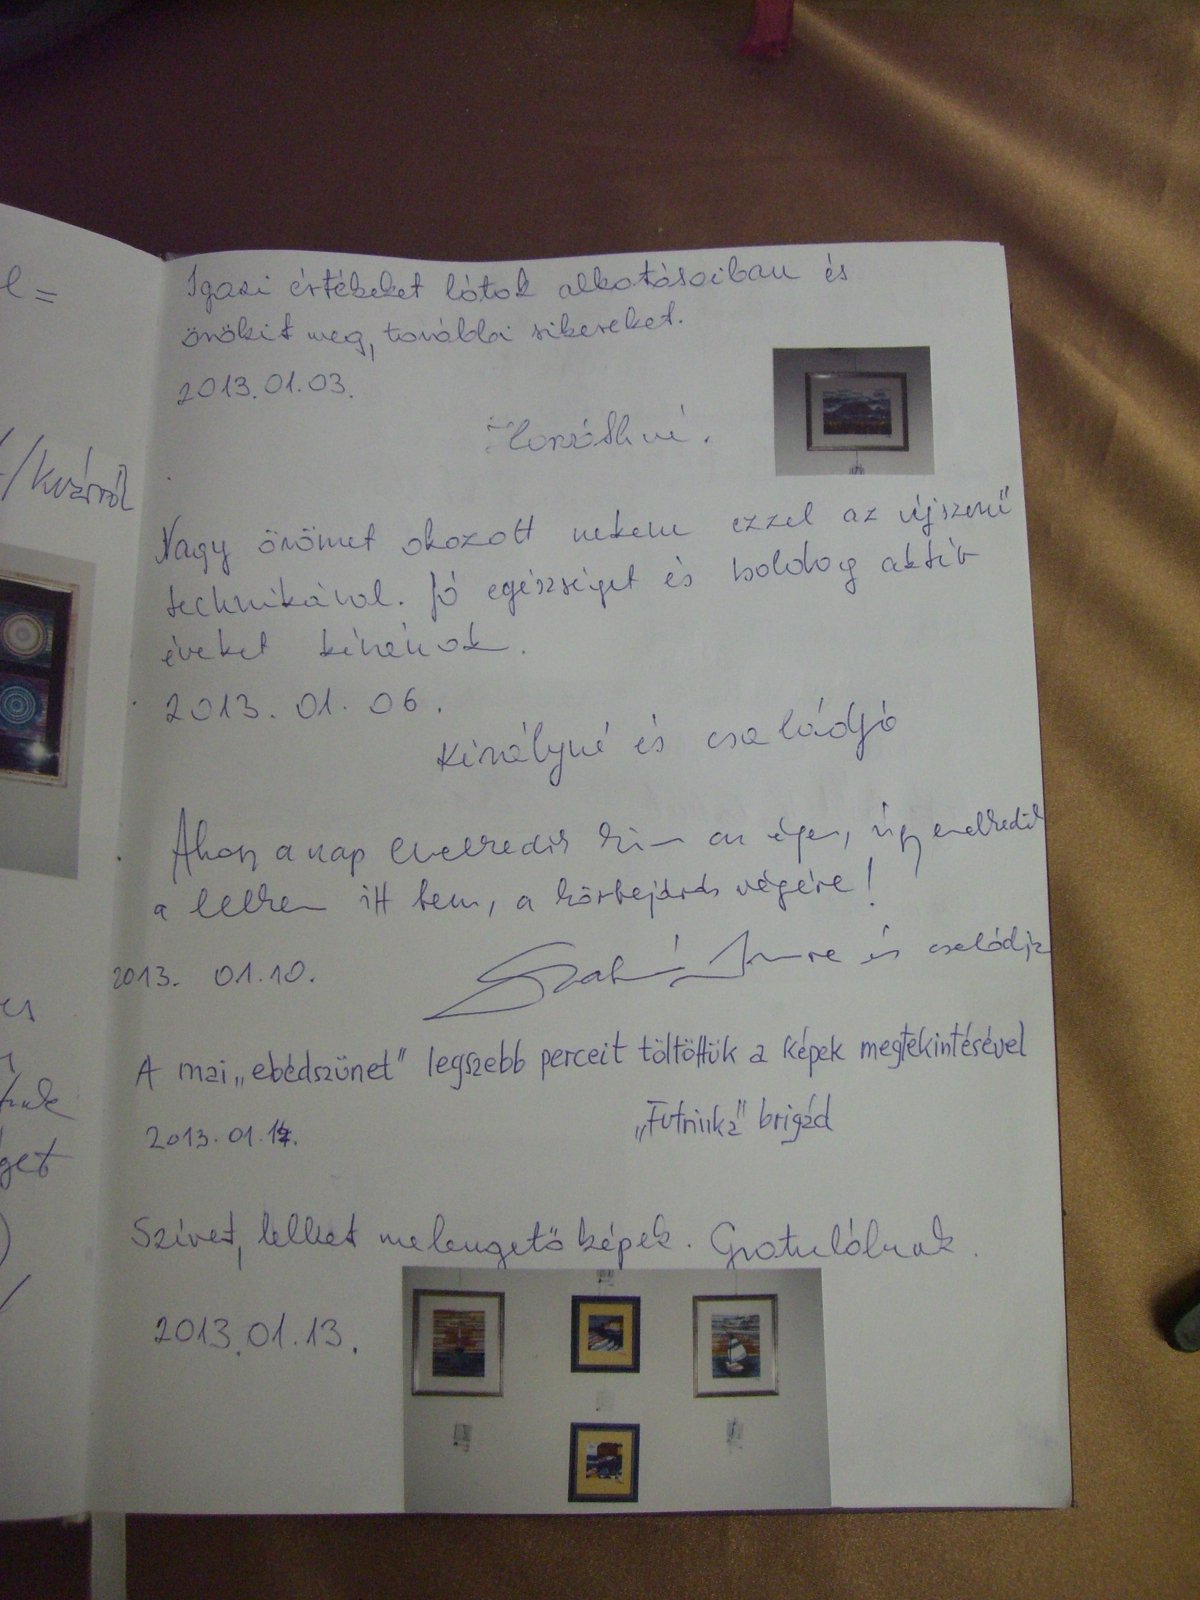 l =
/Kvárról
get
Igazi értékeket látok alkotásaiban és
örökit meg, további sikereket.
2013.01.03.
Horváthné.
Nagy örömet okozott nekem ezzel az újszerű
technikával. Jó egészséget és boldog aktív
éveket kívánok.
2013. 01. 06.
Királyné és családja
Ahogy a nap emelkedik az égen, úgy emelkedik
a lelkem itt benn, a körbejárás végére!
2013. 01.10.
Szabó Imre és családja
A mai „ebédszünet" legszebb perceit töltöttük a képek megtekintésével
2013.01.14.
„Futrinka" brigád
Szívet, lelket melengető képek. Gratulálunk.
2013.01.13.